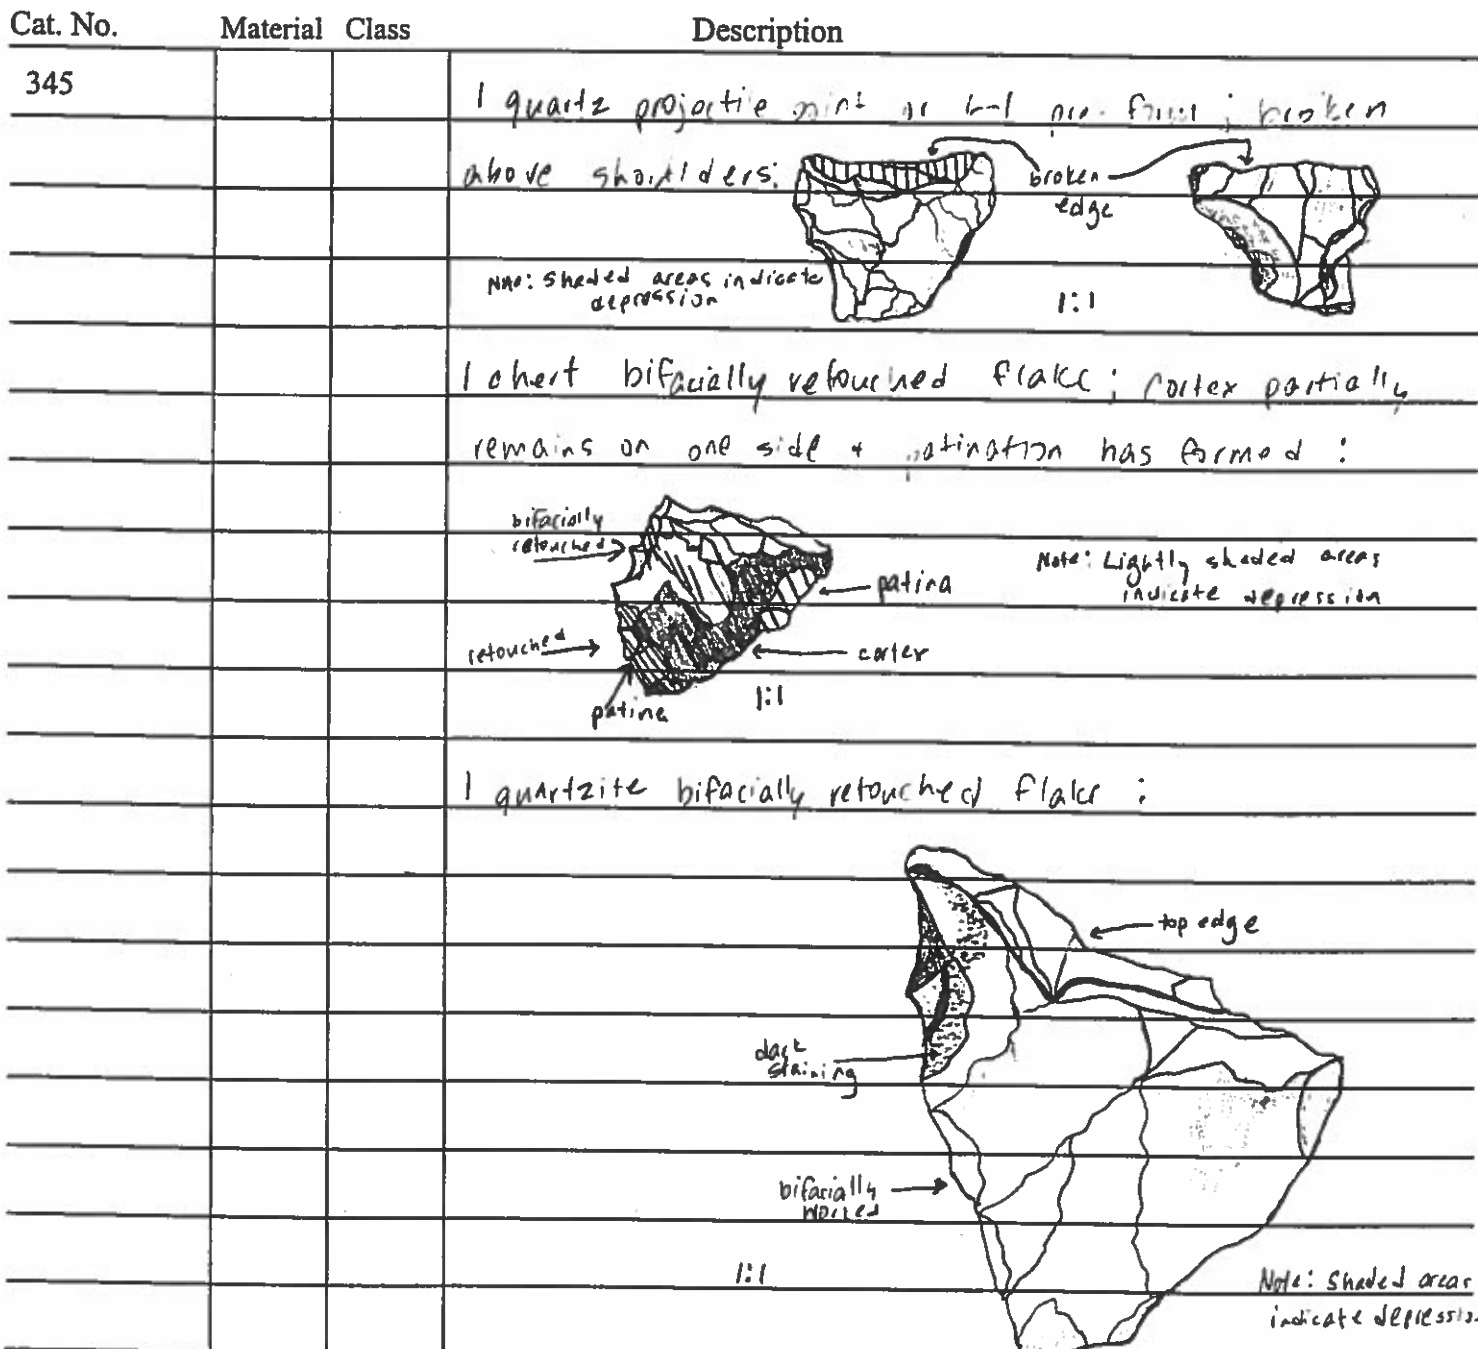 Cat. No. Material Class Description
345
1 quartz projectile point or ; broken
above shoulders:
broken
edge
Note: Shaded areas indicate
depression
1:1
1 chert bifacially retouched flake; cortex partially
remains on one side + patination has formed:
bifacially
retouched
patina
Note: Lightly shaded areas
indicate depression
retouched
cortex
patina
1:1
1 quartzite bifacially retouched flake:
top edge
dark
staining
bifacially
worked
1:1
Note: Shaded areas
indicate depression